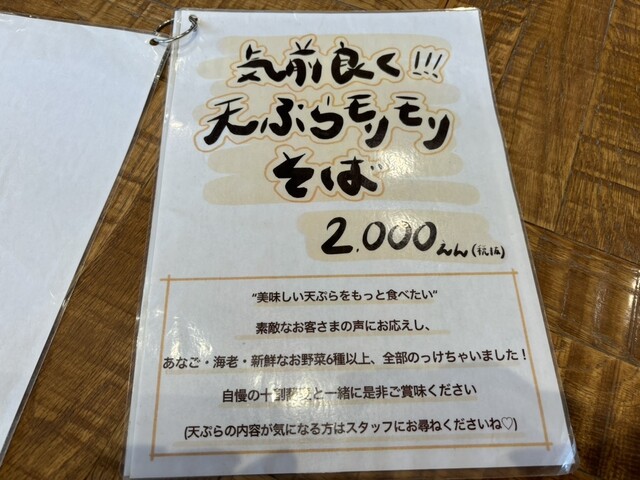 気前良く!!!
天ぷらモリモリ
そば
2.000えん(税抜)
"美味しい天ぷらをもっと食べたい"
素敵なお客さまの声にお応えし、
あなご・海老・新鮮なお野菜6種以上、全部のっけちゃいました！
自慢の十割蕎麦と一緒に是非ご賞味ください
(天ぷらの内容が気になる方はスタッフにお尋ねくださいね♡)